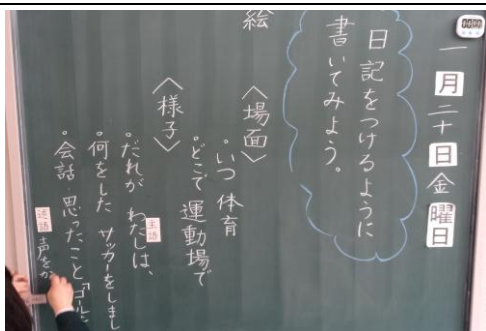 一月二十日金曜日
日記をつけるように
書いてみよう。
絵
〈場面〉
・いつ 体育
・どこで 運動場で
〈様子〉
・だれが わたしは、
主語
・何をした サッカーをしまし
・会話・思ったこと「ゴール
述語
声をか